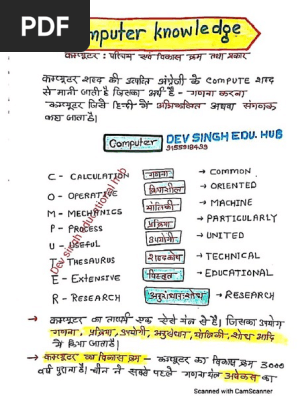 PDF
Computer knowledge
कम्प्यूटर : परिचय एवं विकास क्रम तथा प्रकार
कम्प्यूटर शब्द की उत्पत्ति अंग्रेजी के COMPUTE शब्द
से मानी जाती है जिसका अर्थ है - गणना करना
कम्प्यूटर जिसे हिन्दी में अभिकलित्र अथवा संगणक
कहा जाता है।
Computer DEV SINGH EDU. HUB
C - CALCULATION गणना → COMMON
O - OPERATIVE क्रियाशील → ORIENTED
M - MECHANICS यांत्रिकी → MACHINE
P - PROCESS प्रक्रिया → PARTICULARLY
U - USEFUL उपयोगी → UNITED
T - THESAURUS शब्दकोष → TECHNICAL
E - EXTENSIVE विस्तृत → EDUCATIONAL
R - RESEARCH अनुसंधान/शोध → RESEARCH
Dev singh educational hub
→ कम्प्यूटर का तात्पर्य एक ऐसे यंत्र से है। जिसका उपयोग
गणना, प्रक्रिया, उपयोगी, अनुसंधान, यांत्रिकी, शोध आदि
में किया जाता है।
→ कम्प्यूटर का विकास क्रम - कम्प्यूटर का विकास क्रम 3000
वर्ष पुराना है। चीन ने सबसे पहले गणना यंत्र अबेकस का
Scanned with CamScanner